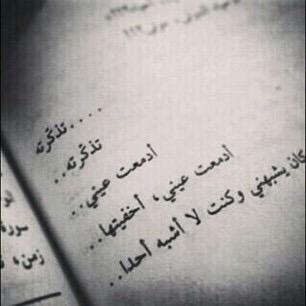 ....تذكّرته
تذكّرته..
أدمعت عيني..
أدمعت عيني، أخفيتها..
كان يشبهني وكنت لا أشبه أحدا..